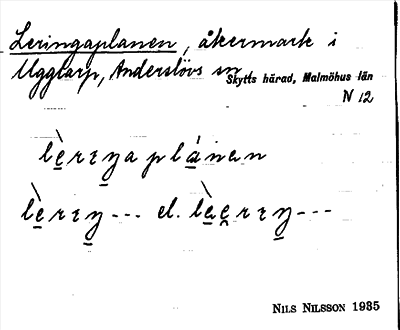 Leringaplanen, åkermark i
Ugglarp, Anderslövs sn
Skytts härad, Malmöhus län
N 12
lèrɪŋa plánan
lèrɪŋ--- el. làerɪŋ---
NILS NILSSON 1935